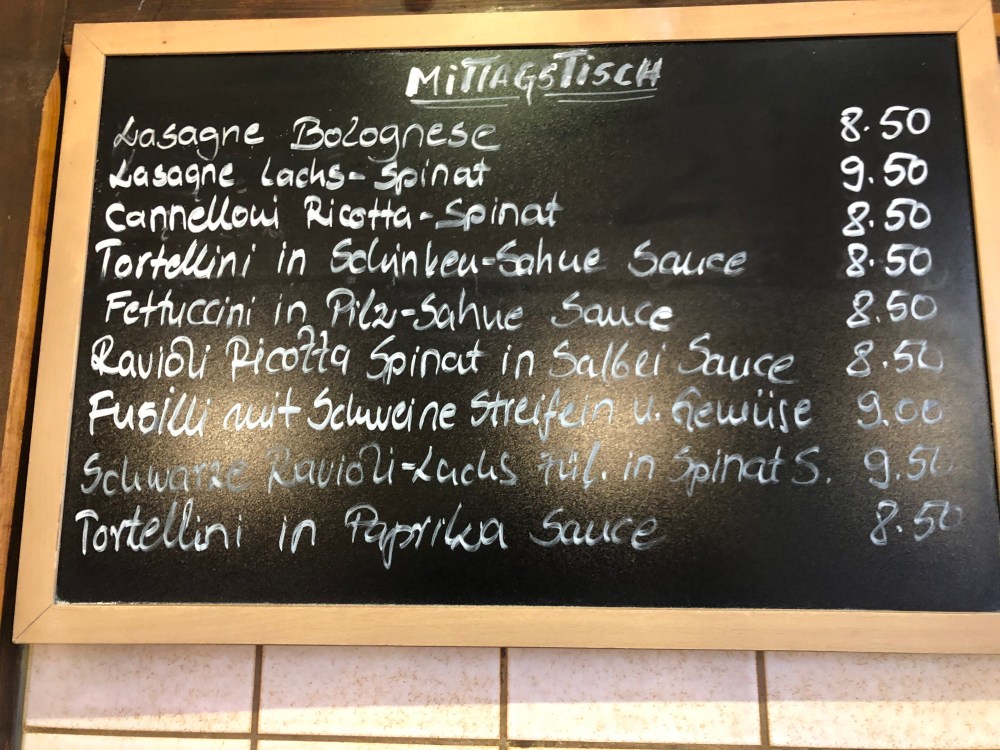 MiTTAGSTiSCH
Lasagne Bolognese 8.50
Lasagne Lachs-Spinat 9.50
Cannelloni Ricotta-Spinat 8.50
Tortellini in Schinken-Sahne Sauce 8.50
Fettuccini in Pilz-Sahne Sauce 8.50
Ravioli Ricotta Spinat in Salbei Sauce 8.50
Fusilli mit Schweine Streifein u. Gemüse 9.00
Schwarze Ravioli-Lachs Fül. in Spinat S. 9.50
Tortellini in Paprika Sauce 8.50